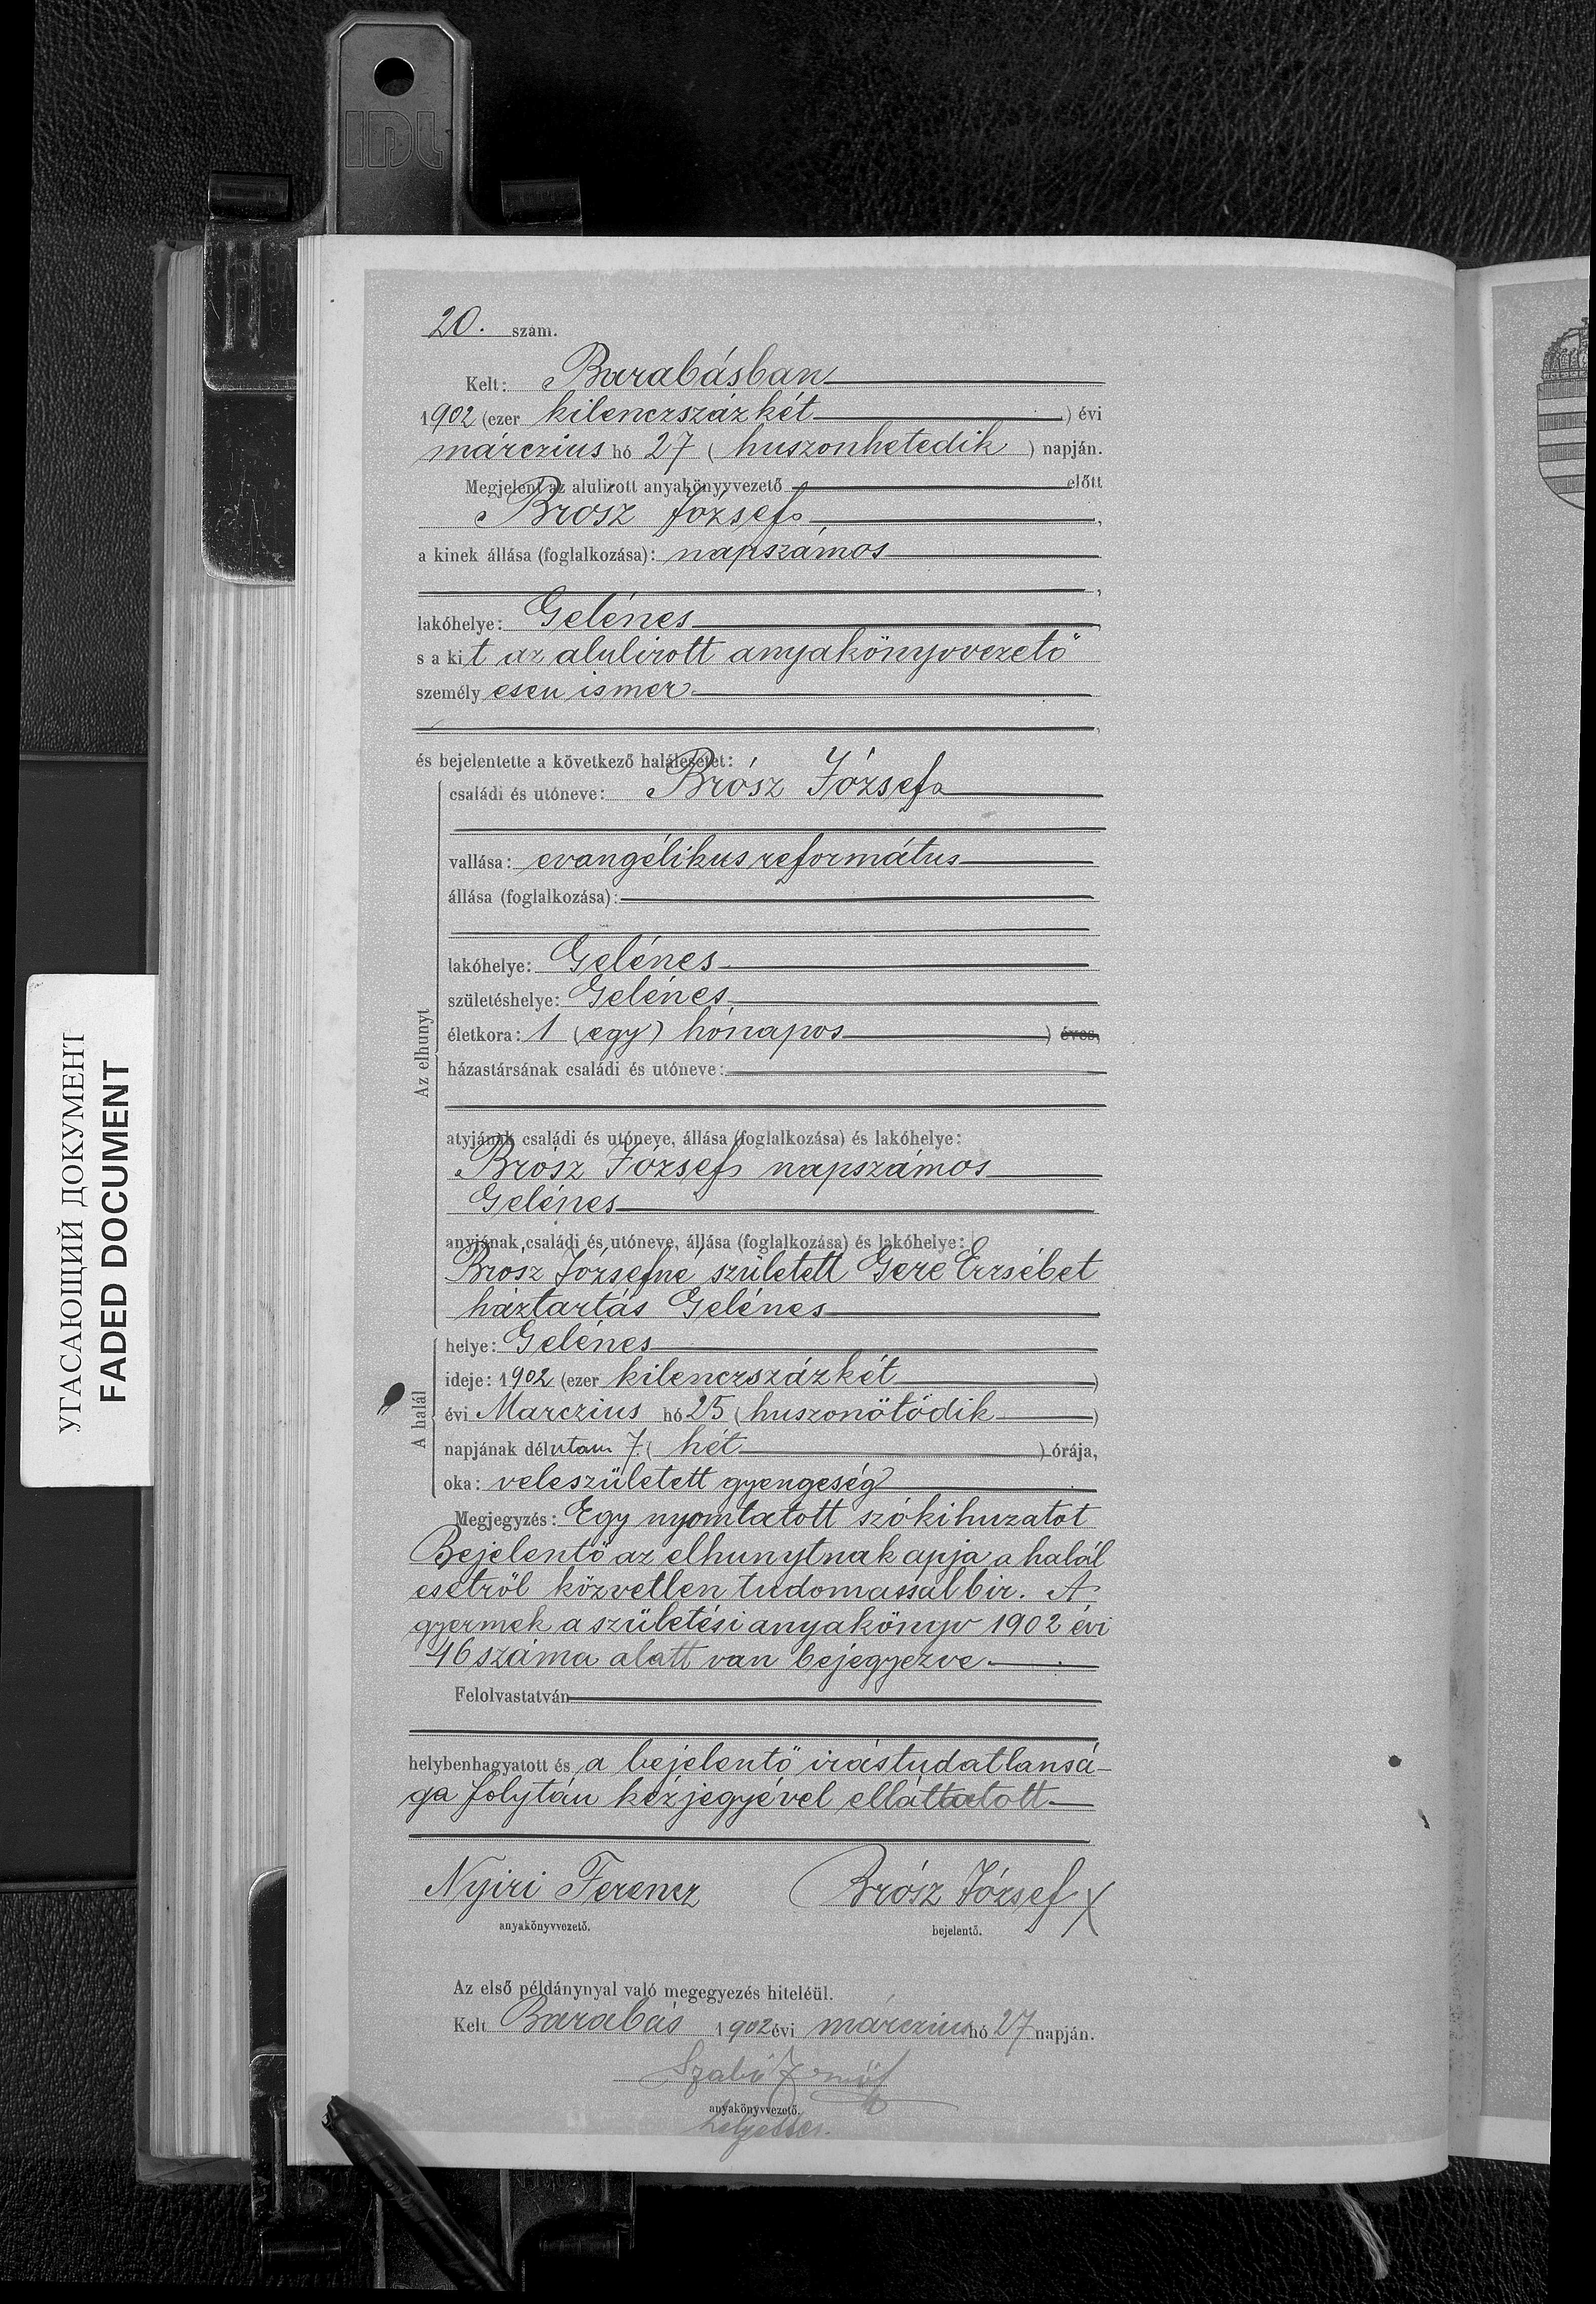 IDL
УГАСАЮЩИЙ ДОКУМЕНТ
FADED DOCUMENT
20. szám.
Kelt: Barabásban
1902 (ezer kilenczszázkét ) évi
márczius hó 27 ( huszonhetedik ) napján.
Megjelent az alulirott anyakönyvvezető előtt
Brosz József,
a kinek állása (foglalkozása): napszámos
,
lakóhelye: Gelénes
s a kit az alulirott anyakönyvvezető
személyesen ismer
,
és bejelentette a következő halálesetet:
Az elhunyt
családi és utóneve: Brósz József
vallása: evangélikus református
állása (foglalkozása):
lakóhelye: Gelénes
születéshelye: Gelénes
életkora: 1 (egy) hónapos ) éves,
házastársának családi és utóneve:
atyjának családi és utóneve, állása (foglalkozása) és lakóhelye:
Brósz József napszámos
Gelénes
anyjának családi és utóneve, állása (foglalkozása) és lakóhelye:
Brósz Józsefné született Gere Erzsébet
háztartás Gelénes
A halál
helye: Gelénes
ideje: 1902 (ezer kilenczszázkét )
évi Marczius hó 25 ( huszonötödik )
napjának délutan 7. ( hét ) órája,
oka: veleszületett gyengeség
Megjegyzés: Egy nyomtatott szó kihuzatot
Bejelentő az elhunytnak apja a halál
esetről közvetlen tudomassal bir. A
gyermek a születési anyakönyv 1902 évi
46 száma alatt van bejegyezve.
Felolvastatván
helybenhagyatott és a bejelentő irástudatlansá-
ga folytán kézjegyével elláttatott
Nyiri Ferencz Brósz József X
anyakönyvvezető. bejelentő.
Az első példánynyal való megegyezés hiteléül.
Kelt Barabás 1902 évi márczius hó 27 napján.
Szabó
anyakönyvvezető.